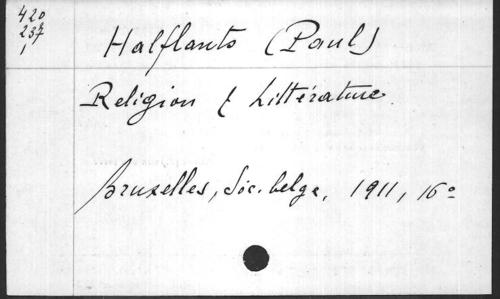 420
237
1
Halflants (Paul)
Religion & Littérature.
Bruxelles, Soc. belge, 1911, 16°